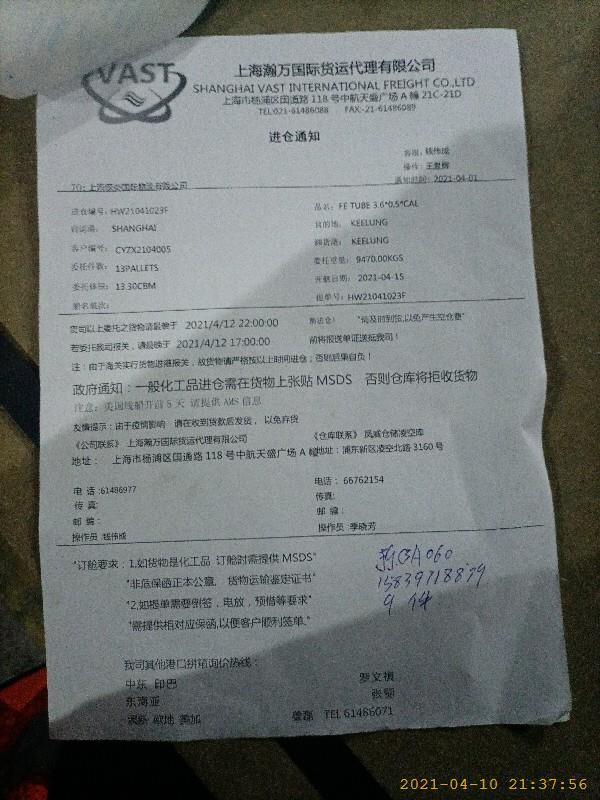 VAST
上海瀚万国际货运代理有限公司
SHANGHAI VAST INTERNATIONAL FREIGHT CO.,LTD
上海市杨浦区国通路 118 号中航天盛广场 A 幢 21C-21D
TEL:021-61486088 FAX:-21-61486089
进仓通知
客服: 钱伟成
操作:
通知时间: 2021-04-01
进仓编号: HW21041023F
品名: FE TUBE 3.6*0.5*CAL
SHANGHAI
目的地: KEELUNG
客户编号: CYZX2104005
卸货港: KEELUNG
委托件数: 13PALLETS
委托重量: 9470.00KGS
委托体积: 13.30CBM
开航日期: 2021-04-15
船名航次:
提单号: HW21041023F
您司以上委托之货物请最晚于 2021/4/12 22:00:00 "请及时到货,以免产生空仓费"
若委托我司报关, 请最晚于 2021/4/12 17:00:00 前将报送单证送抵我司!
注:由于海关实行货物进港报关,故货物请严格按以上时间进仓;否则后果自负!
政府通知:一般化工品进仓需在货物上张贴 MSDS 否则仓库将拒收货物
注意: 美国线船开前 5 天 请提供 AMS 信息
友情提示:由于疫情影响 请在收到货款后发货, 以免弃货
《公司联系》 上海瀚万国际货运代理有限公司
《仓库联系》 凤威仓储凌空库
地址: 上海市杨浦区国通路 118 号中航天盛广场 A
地址: 浦东新区凌空北路 3160 号
电 话:61486977
电话: 66762154
传 真:
传真:
邮 编:
邮 编:
操作员:钱伟成
操作员:季晓芳
"订舱要求:1,如货物是化工品 订舱时需提供 MSDS"
"非危保函正本公章, 货物运输鉴定证书"
"*2,如提单需要倒签,电放,预借等要求"
"需提供相对应保函,以便客户顺利签单."
15839718879
9 件
我司其他港口拼箱询价热线:
中东 印巴
罗文祺
东南亚
欧地 美加
曾磊 TEL 61486071
2021-04-10 21:37:56